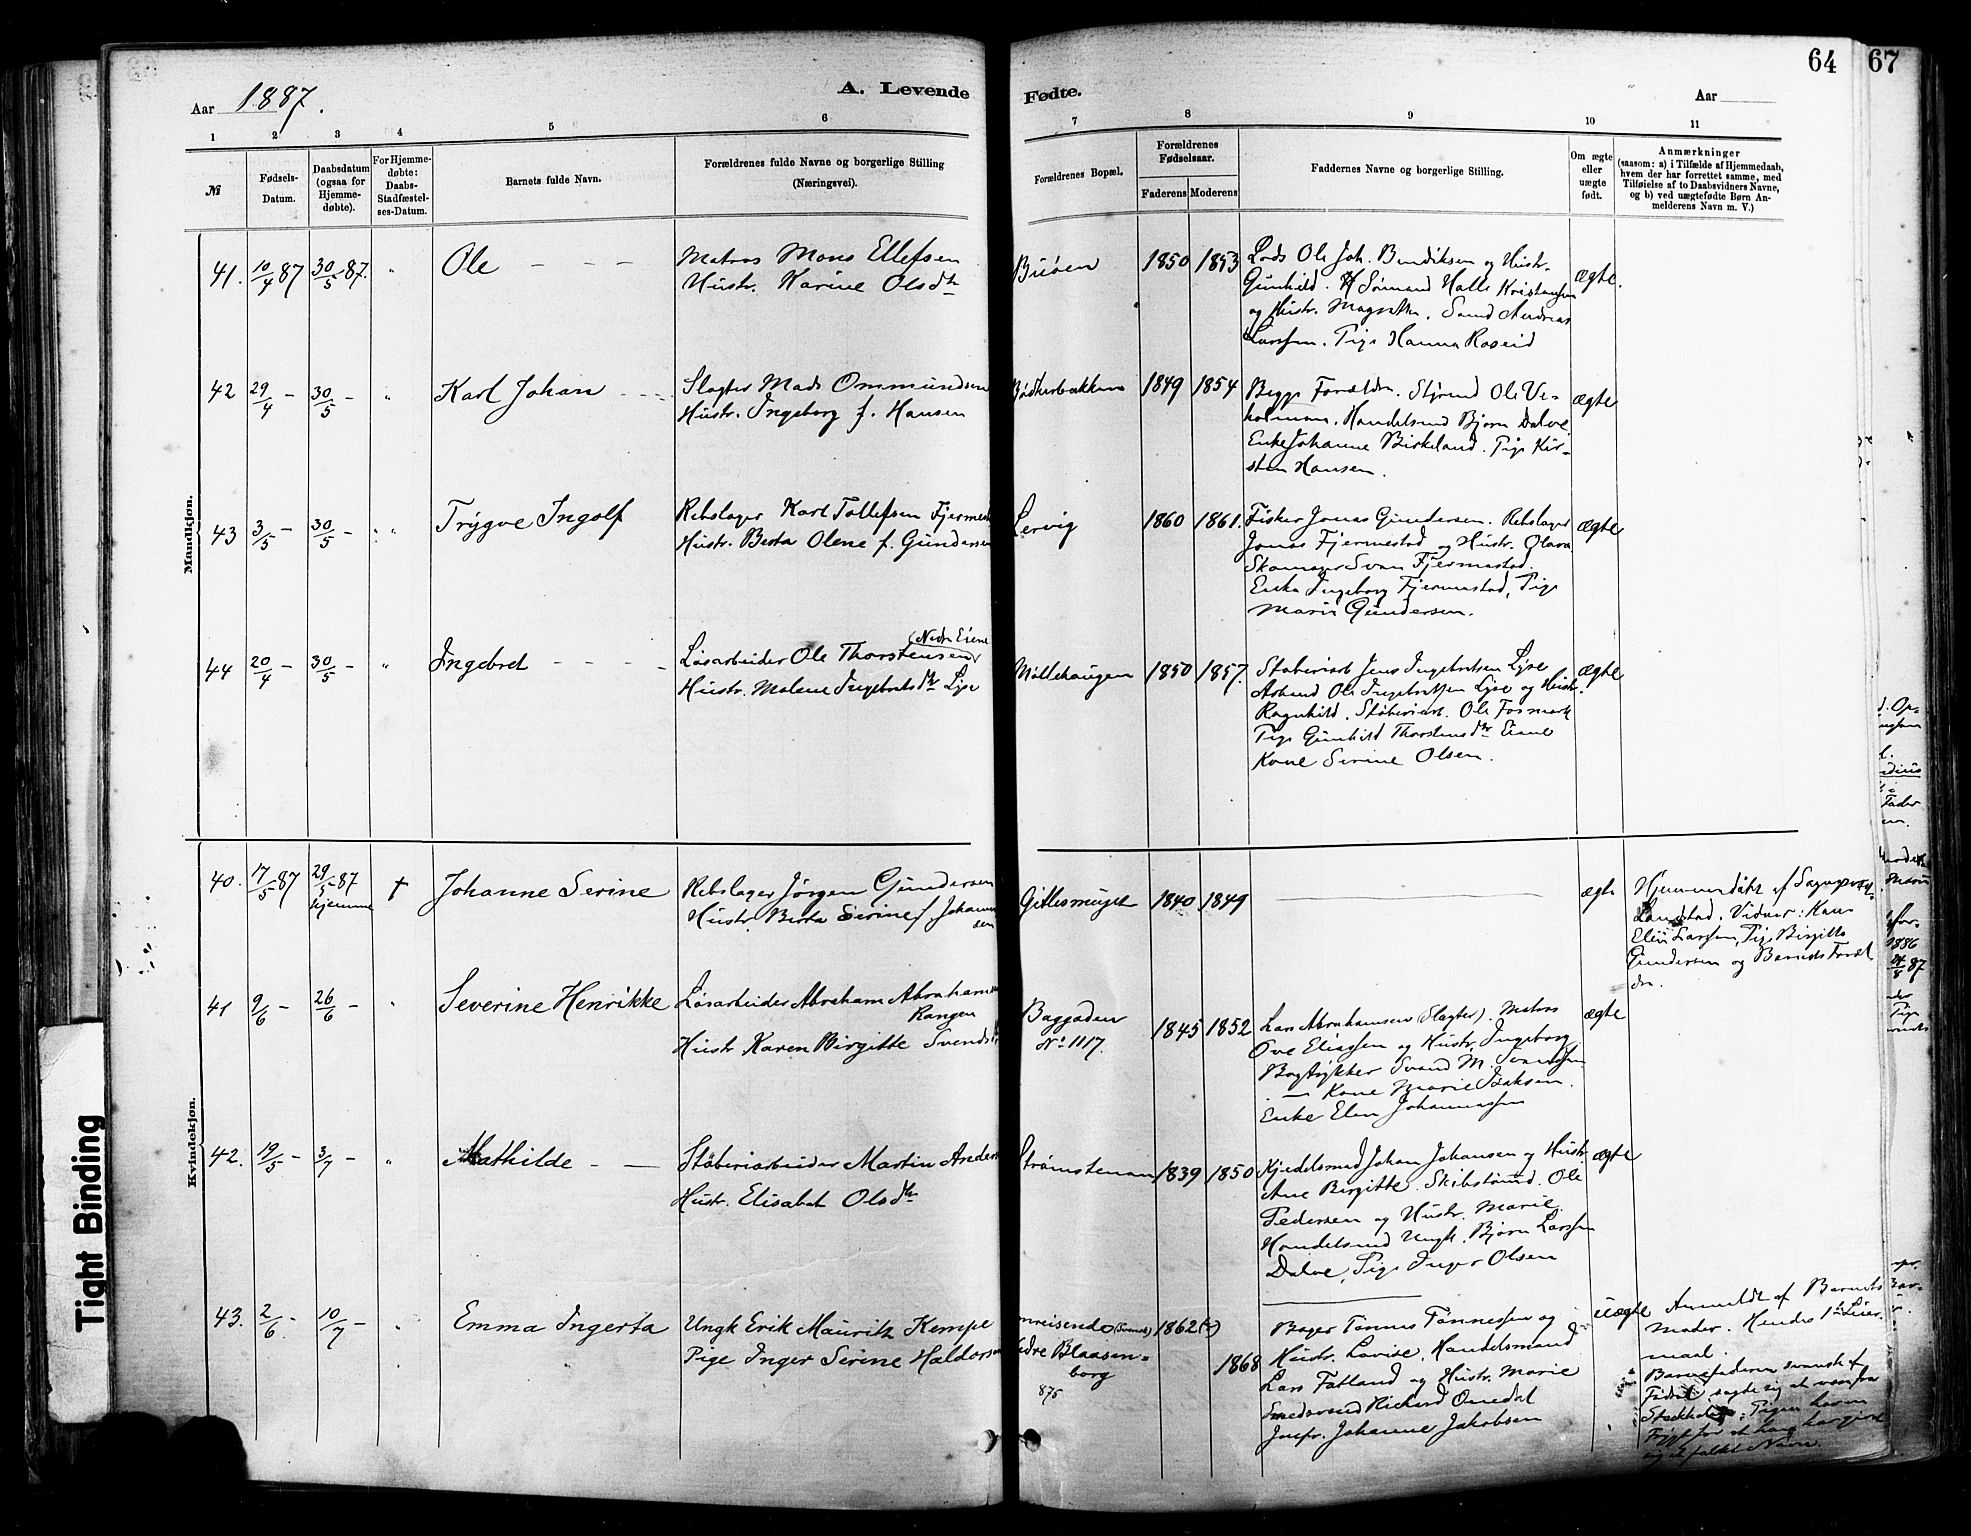 64 67
Aar 1887. A. Levende Fødte. Aar
1 2 3 4 5 6 7 8 9 10 11
№
Fødsels-Datum.
Daabsdatum (ogsaa for Hjemme-døbte).
For Hjemme-døbte: Daabs-Stadfæstel-ses-Datum.
Barnets fulde Navn.
Forældrenes fulde Navne og borgerlige Stilling
(Næringsvei).
Forældrenes Bopæl.
Forældrenes Fødselsaar.
Faderens Moderens
Faddernes Navne og borgerlige Stilling.
Om ægte eller uægte født.
Anmærkninger
(saasom: a) i Tilfælde af Hjemmedaab,
hvem der har forrettet samme, med
Tilføielse af to Daabsvidners Navne,
og b) ved uægtefødte Børn An-
melderens Navn m. V.)
Mandkjøn.
41. 10/4 87 30/5 87. " Ole - - -
Matros Mons Ellefsen
Hustr. Karine Olsdtr
Buøen 1850 1853
Lods Ole Joh. Bendiksen og Hustr.
Gunhild. Sømand Halle Kristensen
og Hustr. Magrethe. Sømd Andreas
Larssen. Pige Hanna Roseid
ægte.
42 29/4 - 30/5 - " Karl Johan
Slagter Mads Ommundsen
Hustr. Ingeborg f. Hansen
Bødkerbakken 1849 1854
Begge Forældre. Styrmd Ole Ve-
holmen. Handelsmd Bjørn Dalve
Enke Johanne Birkeland. Pige Kir-
sten Hansen.
ægte
43 3/5 - 30/5 - " Trygve Ingolf
Rebslager Karl Tollefsen Fjermest
Hustr. Berta Olene f. Gundersen
Lervig 1860 1861.
Fisker Jonas Gundersen. Rebslager
Jonas Fjermestad og Hustr. Olava
Skomager Sven Fjermestad.
Enke Ingeborg Fjermestad, Pige
Marie Gundersen.
ægte
44 20/4 - 30/5 - " Ingebret - - - -
(Nedre Eiene)
Løsarbeider Ole Thorstensen
Hustr. Malene Ingebretsdtr Lyse
Møllehaugen 1850 1857.
Støberiarb. Jens Ingebretsen Lyse
Arbmd Ole Ingebretsen Lyse og Hustr.
Ragnhild. Støberiarb. Ole Fosmark
Pige Gunhild Thorstensdtr Eiene
Kone Serine Olsen.
ægte
Kvindekjøn.
40. 17/5 87 29/5 87 hjemme † Johanne Serine
Rebslager Jørgen Gundersen
Hustr. Berta Serine f. Johannes-
sen
1840 1849
ægte
Hjemmedøbt af Sognepræst
Landstad. Vidner: Kone
Elen Larssen, Pige Birgitte
Gundersen og Barnets Foræl-
dre.
41 9/6 - 26/6 - " Severine Henrikke
Løsarbeider Abraham Abrahamsen
Rangen
Hustr. Karen Birgitte Svendsdtr
Baggaden
No 1117.
1845 1852
Lars Abrahamsen (Slagter). Matros
Ove Eliassen og Hustr. Ingeborg
Bogtrykker Svend M. Svendsen
- Kone Marie Isaksen.
Enke Elen Johannessen
ægte
42. 19/5 - 3/7 - " Mathilde - -
Støberiarbeider Martin Anders
Hustr. Elisabet Olsdtr
Strømstenen 1839 1850
Kjedelsmed Johan Johansen og Hustr
Ane Birgitte. Skibstømmd. Ole
Pedersen og Hustr. Marie.
Handelsmd Ungk. Bjørn Larssen
Dalve, Pige Inger Olsen
ægte
43. 2/6 - 10/7 - " Emma Ingerta
Ungk Erik Mauritz Kempe
Pige Inger Serine Haldorsen
omreisende (Svensk)
Nedre Blaasen-
borg
875
1862 (?) 1868
Bager Tønnes Tønnessen og
Hustr. Lovise. Handelsmand
Lars Fatland og Hustr. Marie
Smedsvend Richard Omedal
Jomfr. Johanne Jakobsen
uægte
Anmeldt af Barnets
Moder. Hendes 1ste Leier-
maal.
Barnefaderen svensk af
Fødsel sagde sig at være fra
Stockholm; Pigen havde
Frygt for at han har givet
sig et falskt Navn.
Tight Binding